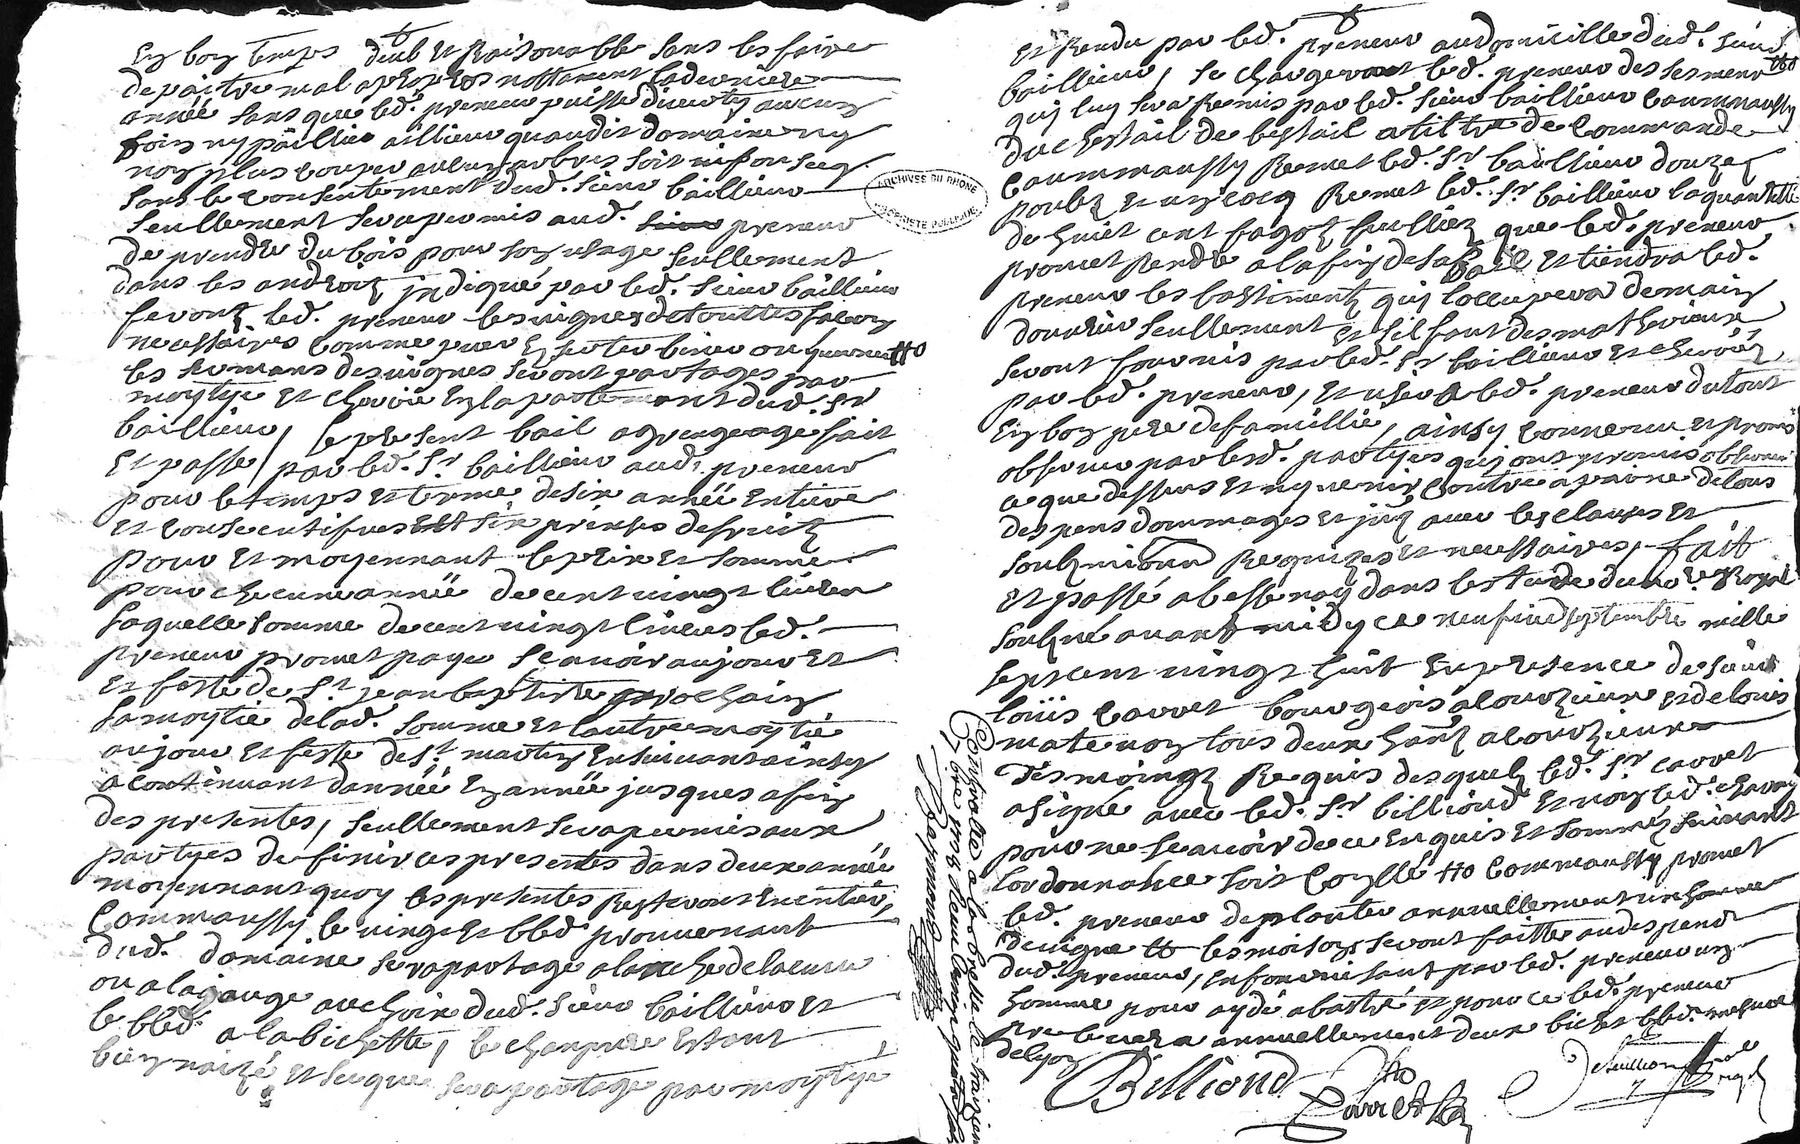 En bon temps deub et Raisonable sans les faire
depaitre mal apropos nottament la derniere
année sans que led. preneur puisse divertir aucun
foins ny paillie aillieur quaudit domaine ny
non plus couper aucun arbres soit nif ou secq
sans le consentement dud. sieur baillieur
seullement sera permis aud. preneur
de prendre du bois pour son usage seullement
dans les androitz jndiqué par led. sieur baillieur
feront led. preneur les vignes de touttes façon
necessaires comme puer en serter biner
les sermans des vignes seront partages par
moytye et choisie en la partement dud. Sr
baillieur, le present bail a grengeage fait
Et passe par led. Sr baillieur aud. preneur
pour le temps et terme de six année entiere
et consecutifves et six prinses de fruitz
pour et moyennant le prix et somme
pour checune année de cent vingt livres
laquelle somme de cent vingt livres led.
preneur promet paye scavoir au jour et
et feste de St jean baptiste prochain
la moytié de lad. somme et lautre moytié
au jour et feste de St martin Ensuivant ainsy
a continuant dannéé En année jusques a fin
des presentes, seullement sera permis aux
partyes de finir ces presentes dans deux année
moyennant quoy les presentes Resteront en entier,
Commaussy le vin et bled provenant
dud. domaine sera partage a lanche de la cuve
ou a la jauge au choix dud. sieur baillieur et
le bled a la bichette, le chanpvre Estant
bien naizé et secque sera partage par moytyé
et Rendu par led. preneur au domicille dud. sieur
baillieur, se chargeront led. preneur des semens
qui luy sera Remis par led. sieur baillieur Coummaussy
du chestail de bestail a tiltre de Commande
Coummaussy Remet led. Sr baillieur douze
poules et un cocq Remet led. Sr baillieur la quantité
de huict cent fagotz fuilliez que led. preneur
promet Rendre a la fin de sa bail et tiendra led.
preneur les bastimentz qui loccupera de main
douvrier seullement et sil faut des matherieaux
seront fournis par led. Sr baillieur et charroiez
par led. preneur, et usera led. preneur du tout
En bon pere de famillié, ainsy convenu et promis
observer par lesd. partyes qui ont promis observer
ce que dessus et ny venir contre a paine de tous
despens dommages et jntz avec les clauses et
soubmions Requizes et necessaires, fait
et passé a bessenay dans lestude du nore Royal
soubné avant midy ce neufvie septembre mille
sept cent vingt huit En presence de sieur
louis Carret bourgeois a Courzieux et de louis
matenon tous deux hantz a Courzieux
Tesmoingz Requis desquelz led. Sr Carret
a signé avec led. Sr billioud et non led. chavany
pour ne scavoir de ce Enquis et sommez suivant
lordonnance soit Coyllé tto Commaussy promet
led. preneur de planter annuellement un homme
de vigne tt les moisons seront faitte au despend
dud. preneur, En fournissant par led. preneur un
homme pour aydé a battre et pour ce led. preneur
prelevera annuellement deux bichet bled mesure
de lyon
Billioud
Carret
Controllé a larbrelle le treizieme
7bre 1728
ARCHIVES DU RHONE